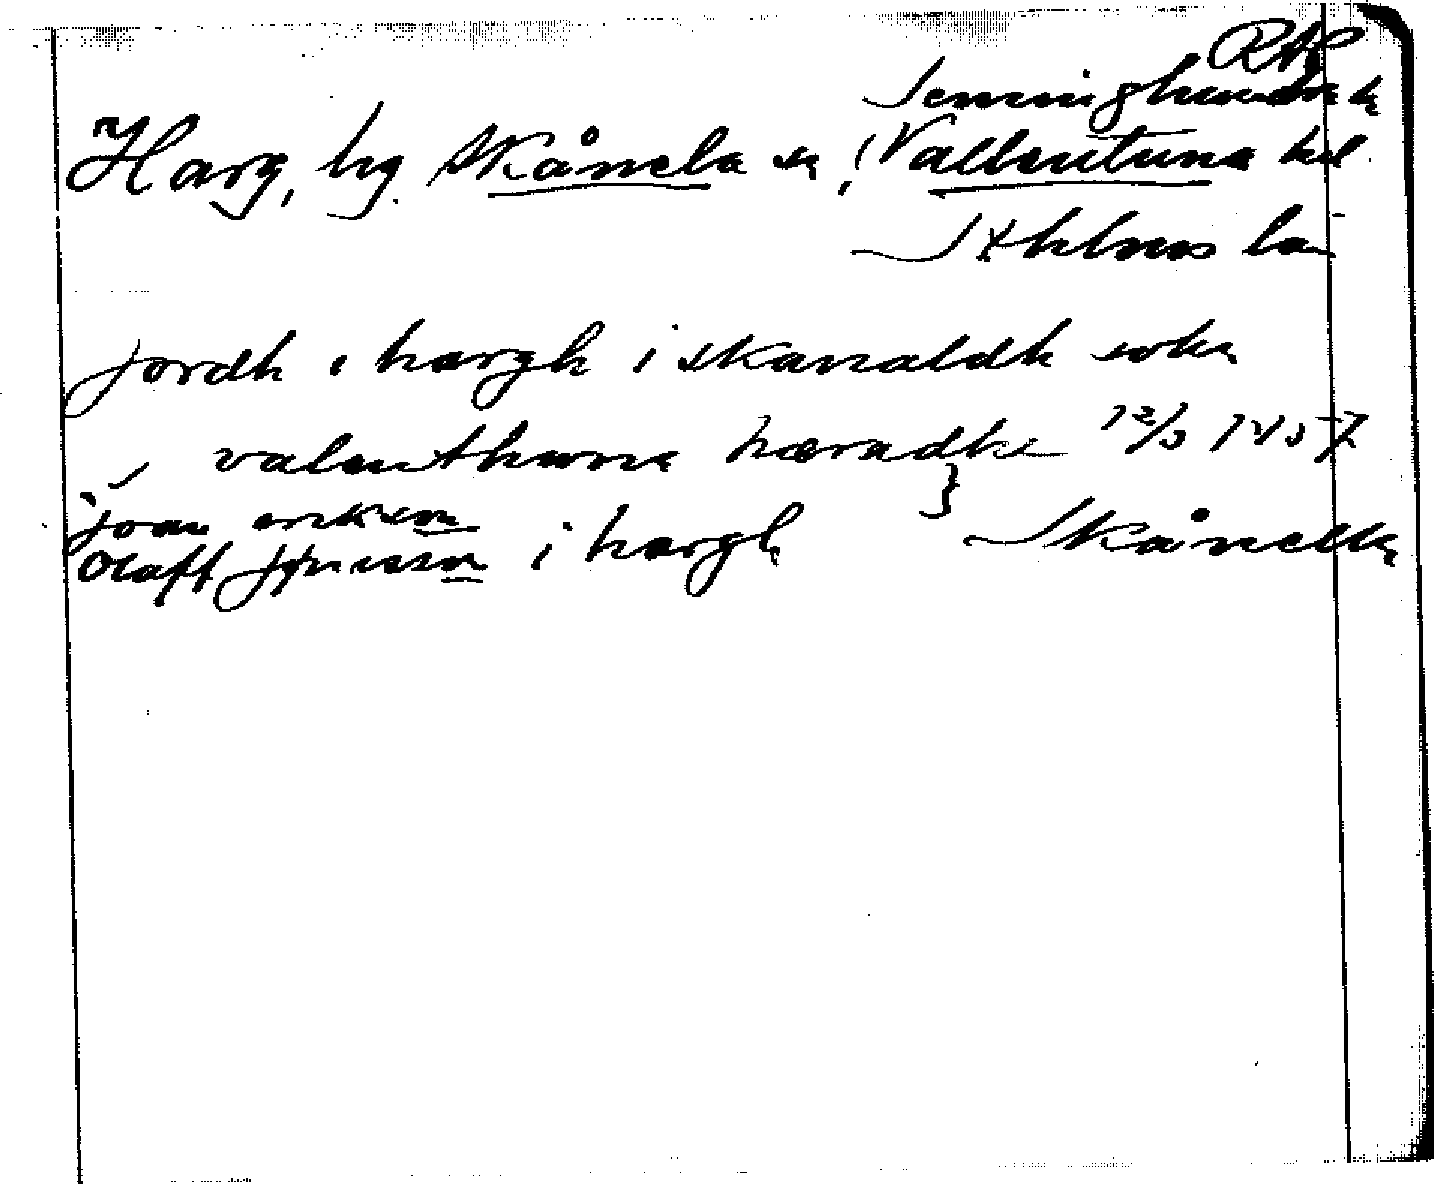 RAP
Seminghundra
Harg, by. Skånela sn, (Vallentuna hd
Sthlms län
jordh i hargh i skanaldh sokn
i valenthuna hæradhe 12/3 1457
joan erikson
Olaff jönsson i hargh } Skånella